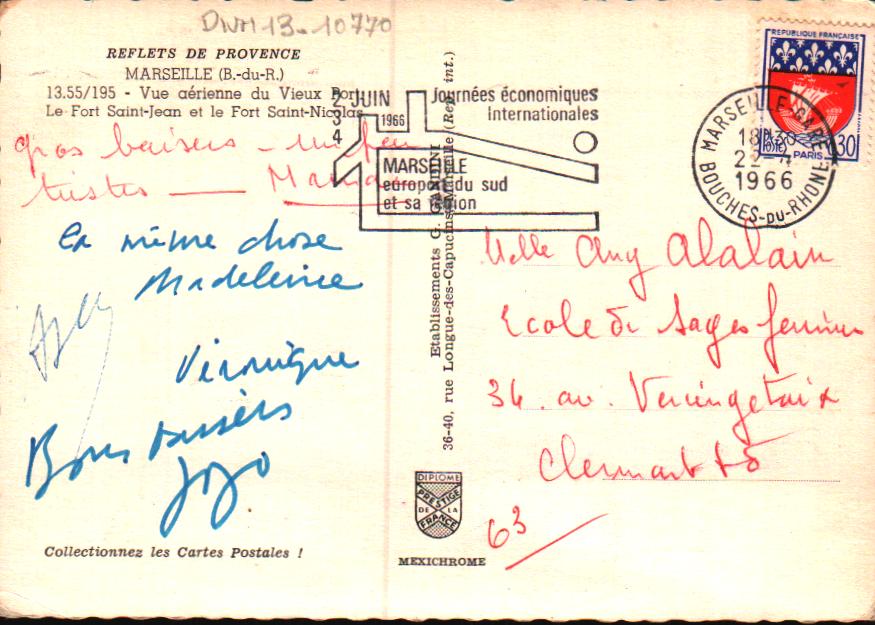 DWM 13-10770
REFLETS DE PROVENCE
MARSEILLE (B.-du-R.)
13.55/195 - Vue aérienne du Vieux Port
Le Fort Saint-Jean et le Fort Saint-Nicolas
gros baisers - un peu
tristes —
la même chose
Madeleine
Véronique
Bons baisers
Jojo
Collectionnez les Cartes Postales !
2 JUIN
3
4
1966
Journées économiques
internationales
MARSEILLE
europort du sud
et sa région
Etablissements G. GANDINI
36-40, rue Longue-des-Capucins, Marseille (Rep. int.)
DIPLOME
PRESTIGE
DE LA
FRANCE
MEXICHROME
REPUBLIQUE FRANÇAISE
POSTES
0,30
PARIS
MARSEILLE-GARE
18H30
22-4
1966
BOUCHES-DU-RHONE
Melle Any Alalain
Ecole de Sages femmes
34. av. Vercingetorix
Clermont Fd
63